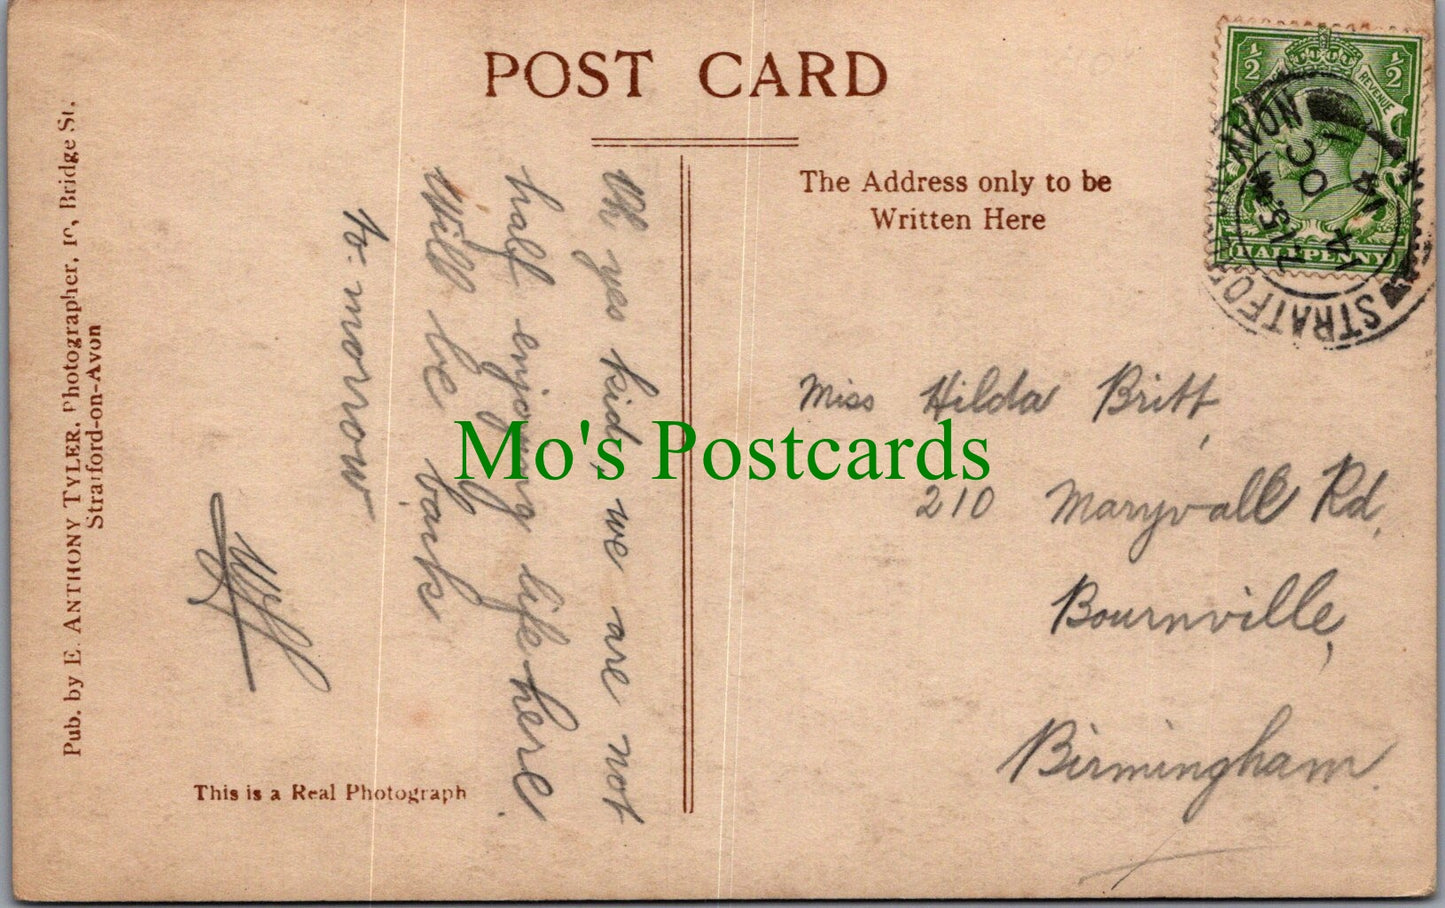 POST CARD
The Address only to be
Written Here
Pub. by E. ANTHONY TYLER, Photographer, Bridge St.
Stratford-on-Avon
Oh yes kid, we are not
half enjoying life here
Will be back
to-morrow
Miss Hilda Britt,
210 Maryvall Rd,
Bournville,
Birmingham.
This is a Real Photograph
Mo's Postcards
1/2 1/2
REVENUE
HALFPENNY
STRATFORD AVON
OC
14
14